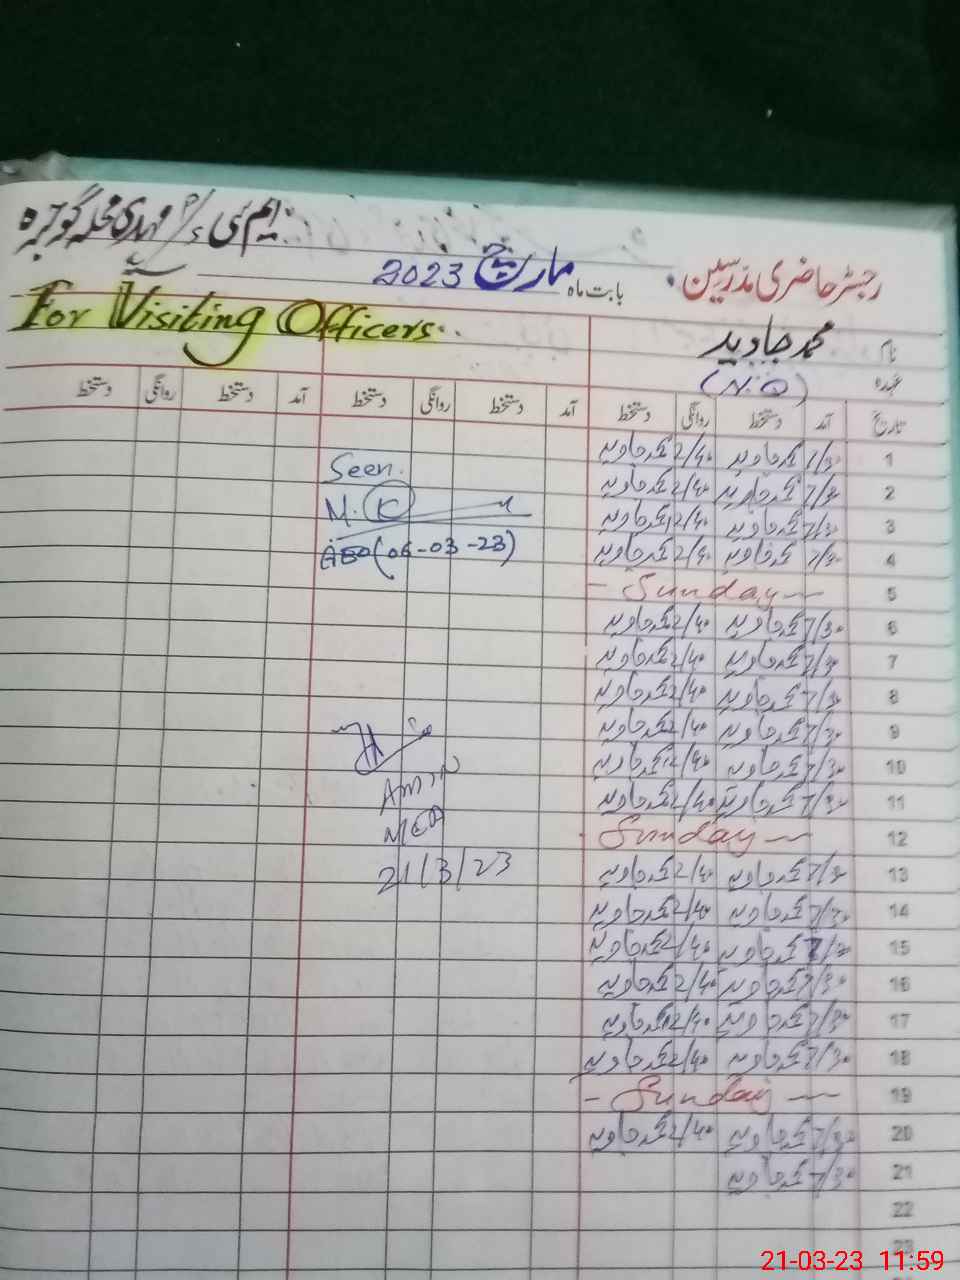 ایم سی /پی مہدی محلہ گوجرہ
رجسٹر حاضری مدرسین
بابت ماہ مارچ 2023
For Visiting Officers
نام محمد جاوید
عہدہ (N.Q)
تاریخ آمد دستخط روانگی دستخط آمد دستخط روانگی دستخط آمد دستخط روانگی دستخط
1 7/30 محمد جاوید 2/40 محمد جاوید
Seen.
2 7/30 محمد جاوید 2/40 محمد جاوید
M. K
3 7/30 محمد جاوید 2/40 محمد جاوید
4 7/30 محمد جاوید 2/40 محمد جاوید
AEO (06-03-23)
5 - Sunday -
6 7/30 محمد جاوید 2/40 محمد جاوید
7 7/30 محمد جاوید 2/40 محمد جاوید
8 7/30 محمد جاوید 2/40 محمد جاوید
9 7/30 محمد جاوید 2/40 محمد جاوید
10 7/30 محمد جاوید 2/40 محمد جاوید
AMIN
11 7/30 محمد جاوید 2/40 محمد جاوید
MEA
12 Sunday -
13 7/30 محمد جاوید 2/40 محمد جاوید
21/3/23
14 7/30 محمد جاوید 2/40 محمد جاوید
15 7/30 محمد جاوید 2/40 محمد جاوید
16 7/30 محمد جاوید 2/40 محمد جاوید
17 7/30 محمد جاوید 2/40 محمد جاوید
18 7/30 محمد جاوید 2/40 محمد جاوید
19 - Sunday -
20 7/30 محمد جاوید 2/40 محمد جاوید
21 7/30 محمد جاوید
22
23
21-03-23 11:59